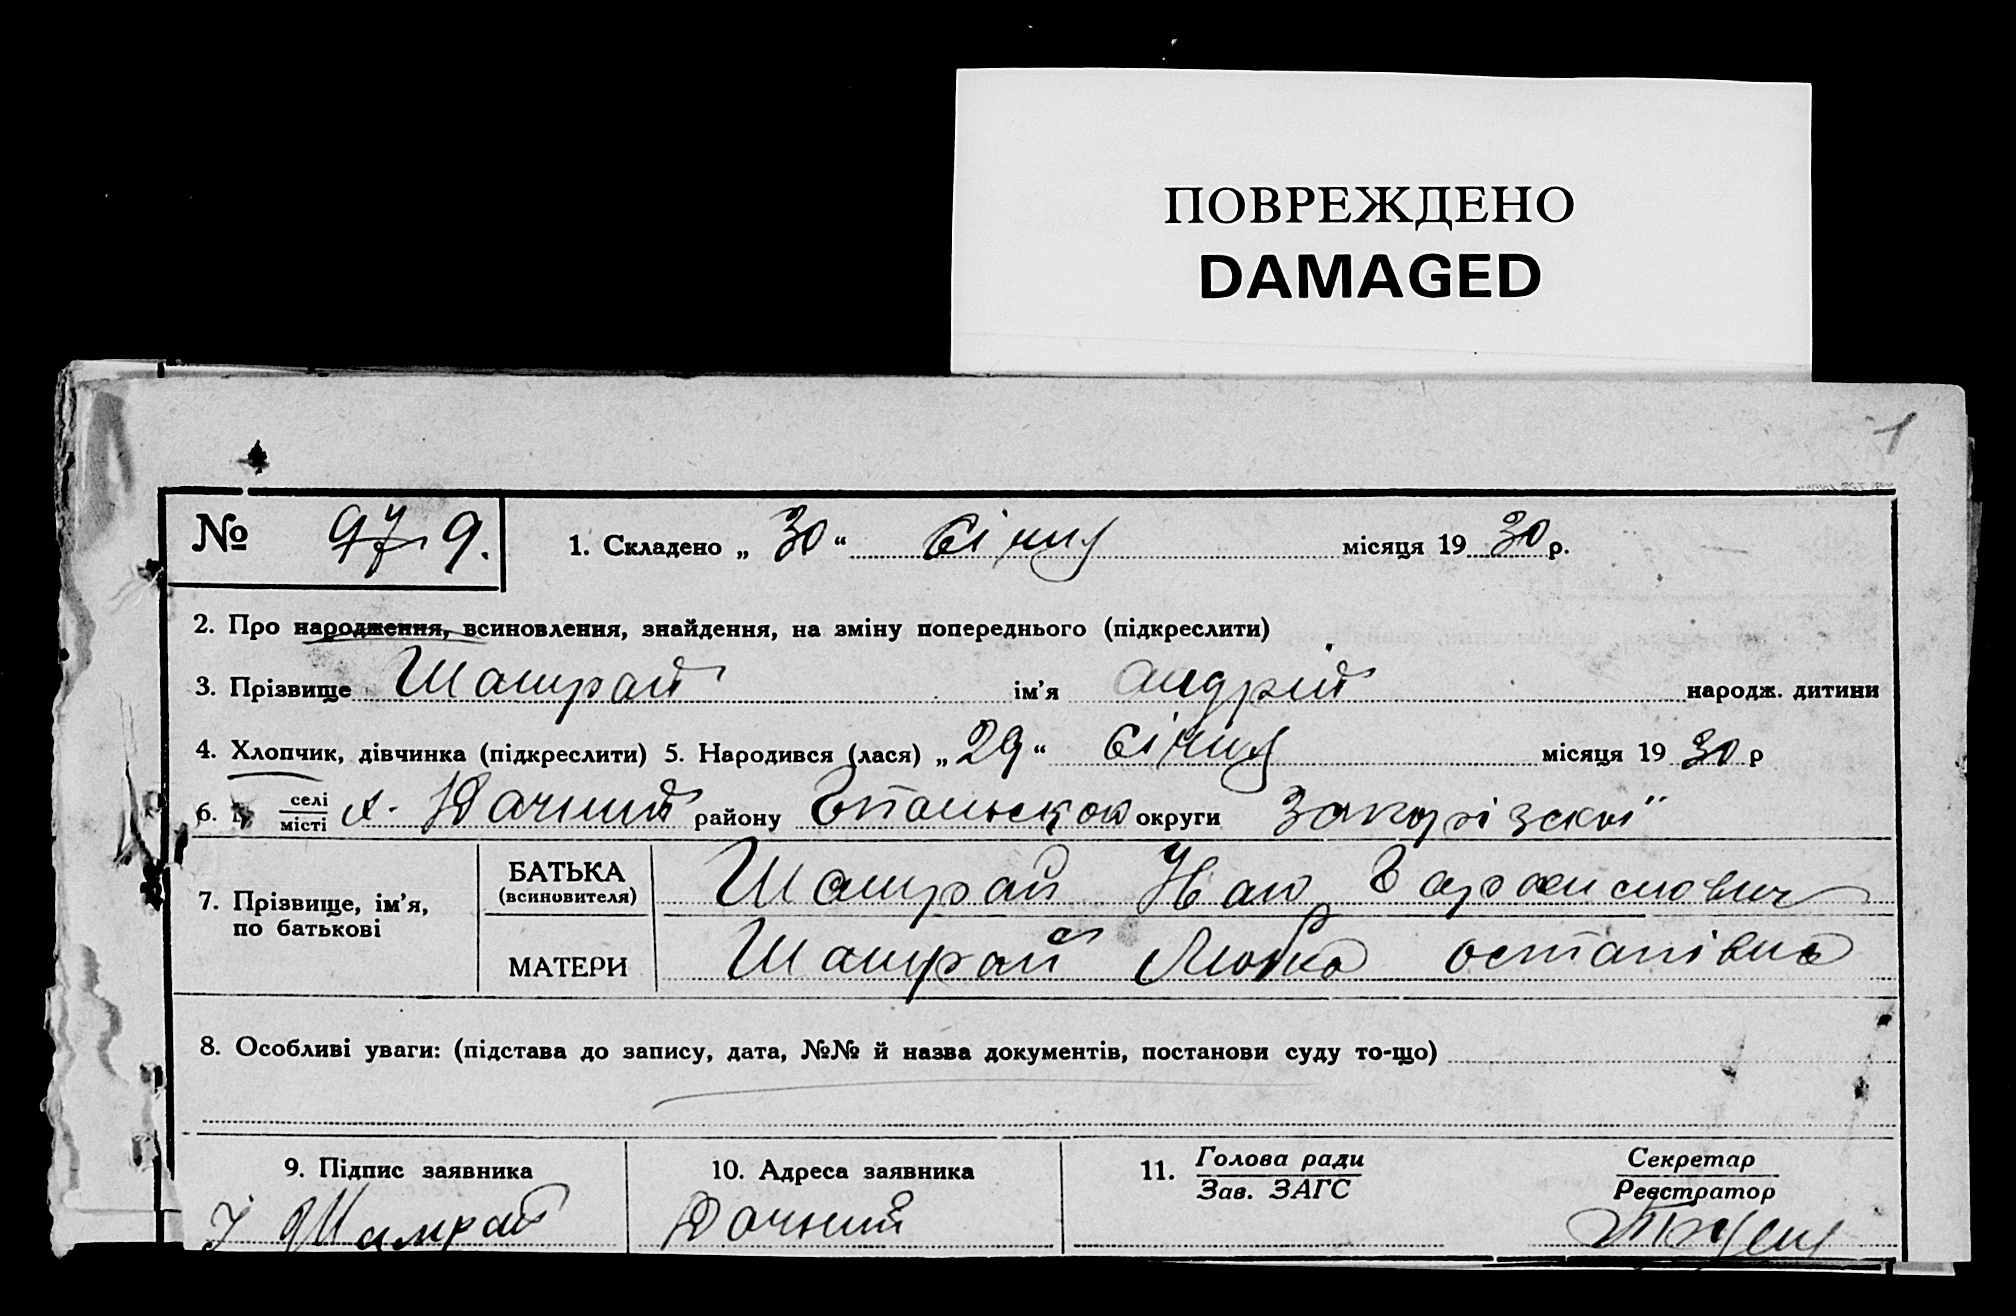 ПОВРЕЖДЕНО
DAMAGED
1
№ 9. 1. Складено „ 30 “ Січня місяця 19 30 р.
2. Про народження, всиновлення, знайдення, на зміну попереднього (підкреслити)
3. Прізвище Шамрай ім’я Андрій народж. дитини
4. Хлопчик, дівчинка (підкреслити) 5. Народився (лася) „ 29 “ Січня місяця 19 30 р
6. селі х. Дачний району округи Запорізскої
місті
БАТЬКА
(всиновителя) Шамрай Иван
7. Прізвище, ім’я,
по батькові
МАТЕРИ Шамрай Любка остапівна
8. Особливі уваги: (підстава до запису, дата, №№ й назва документів, постанови суду то-що)
9. Підпис заявника 10. Адреса заявника 11. Голова ради Секретар
Зав. ЗАГС Реєстратор
І Шамрай Дачний